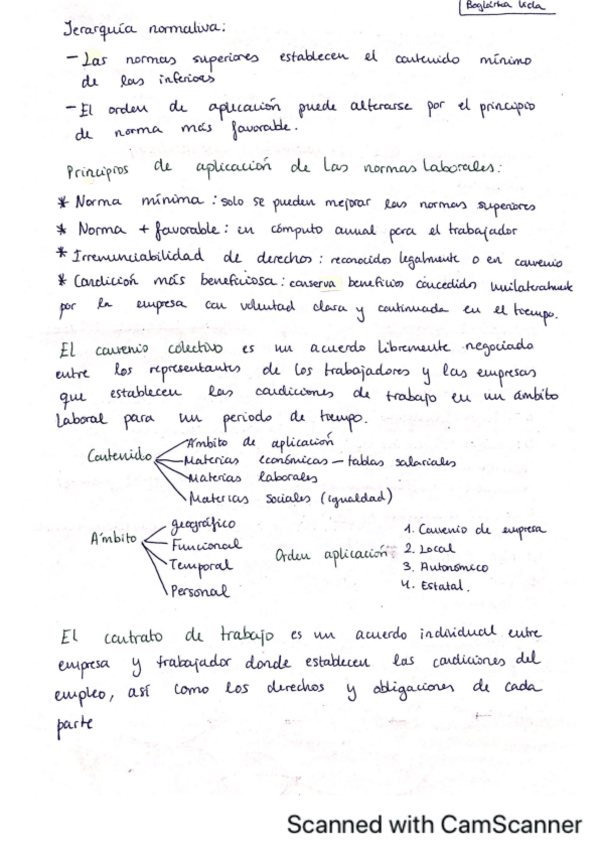 Jerarquía normativa:
- Las normas superiores establecen el contenido mínimo
de las inferiores
- El orden de aplicación puede alterarse por el principio
de norma más favorable.
Principios de aplicación de las normas laborales:
* Norma mínima: solo se pueden mejorar las normas superiores
* Norma + favorable: en cómputo anual para el trabajador
* Irrenunciabilidad de derechos: reconocidos legalmente o en convenio
* Condición más beneficiosa: conserva beneficios concedidos unilateralmente
por la empresa con voluntad clara y continuada en el tiempo.
El convenio colectivo es un acuerdo libremente negociado
entre los representantes de los trabajadores y las empresas
que establecen las condiciones de trabajo en un ámbito
laboral para un periodo de tiempo.
Contenido
Ámbito de aplicación
Materias económicas - tablas salariales
Materias laborales
Materias sociales (igualdad)
Ámbito
geográfico
Funcional
Temporal
Personal
Orden aplicación:
1. Convenio de empresa
2. Local
3. Autonómico
4. Estatal.
El contrato de trabajo es un acuerdo individual entre
empresa y trabajador donde establecen las condiciones del
empleo, así como los derechos y obligaciones de cada
parte
Scanned with CamScanner